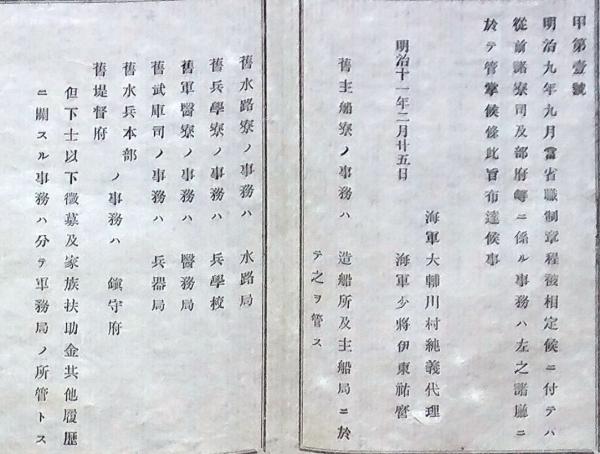 甲第壹號
明治九年九月當省職制章程被相定候ニ付テハ
從前諸寮司及部府等ニ係ル事務ハ左之諸廳ニ
於テ管掌候條此旨布達候事
海軍大輔川村純義代理
海軍少將伊東祐麿
明治十一年二月廿五日
舊主船寮ノ事務ハ 造船所及主船局ニ於
テ之ヲ管ス
舊水路寮ノ事務ハ 水路局
舊兵學寮ノ事務ハ 兵學校
舊軍醫寮ノ事務ハ 醫務局
舊武庫司ノ事務ハ 兵器局
舊水兵本部
舊提督府
ノ事務ハ 鎭守府
但下士以下徵募及家族扶助金其他履歷
ニ關スル事務ハ分テ軍務局ノ所管トス